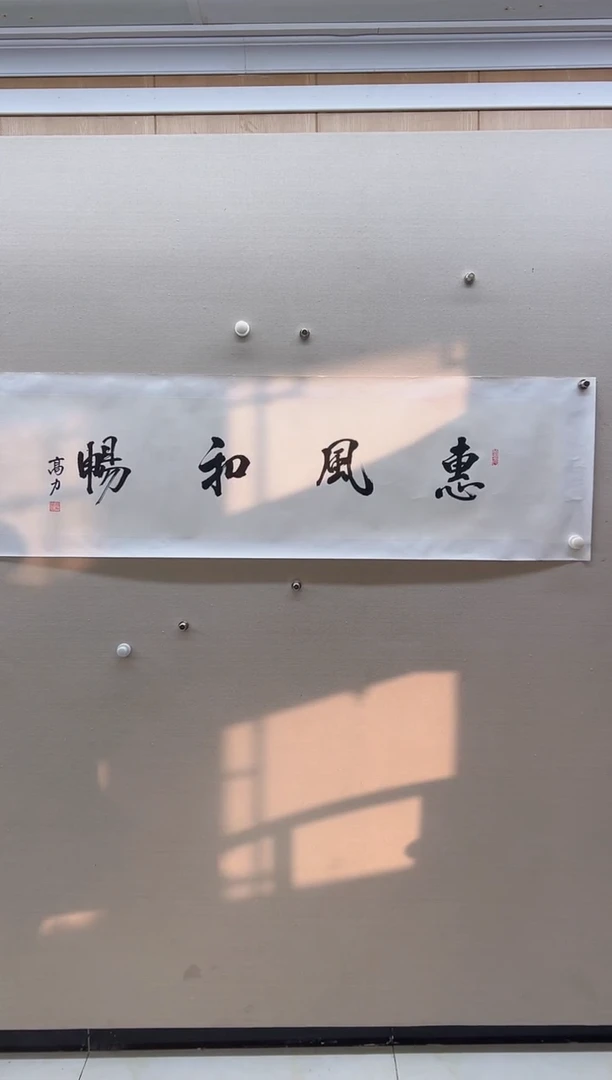 惠風和暢
高力